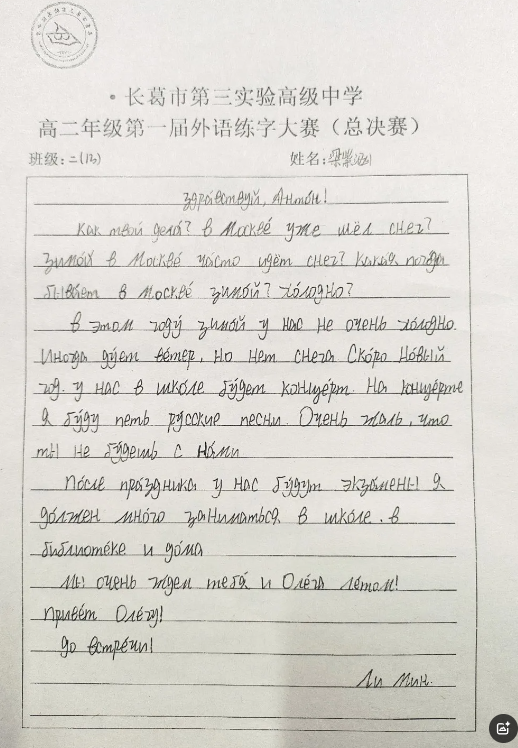 • 长葛市第三实验高级中学
高二年级第一届外语练字大赛（总决赛）
班级:二(13) 姓名:
здра́вствуй, Анто́н!
как твои́ дела́? в Москве́ уже шёл снег?
зимо́й в Москве́ ча́сто идёт снег? Кака́я пого́да
быва́ет в Москве́ зимо́й? хо́лодно?
в э́том году́ зимо́й у нас не о́чень хо́лодно.
Иногда ду́ет ве́тер, но нет снега. Ско́ро Но́вый
год. у нас в шко́ле бу́дет конце́рт. На конце́рте
я бу́ду петь ру́сские песни. О́чень жаль, что
ты не бу́дешь с на́ми
По́сле пра́здника у нас бу́дут экза́мены я
до́лжен мно́го занима́ться в шко́ле, в
библиоте́ке и до́ма
Мы о́чень ждем тебя́ и Оле́га ле́том!
Приве́т Оле́гу!
до встре́чи!
Ли Мин.